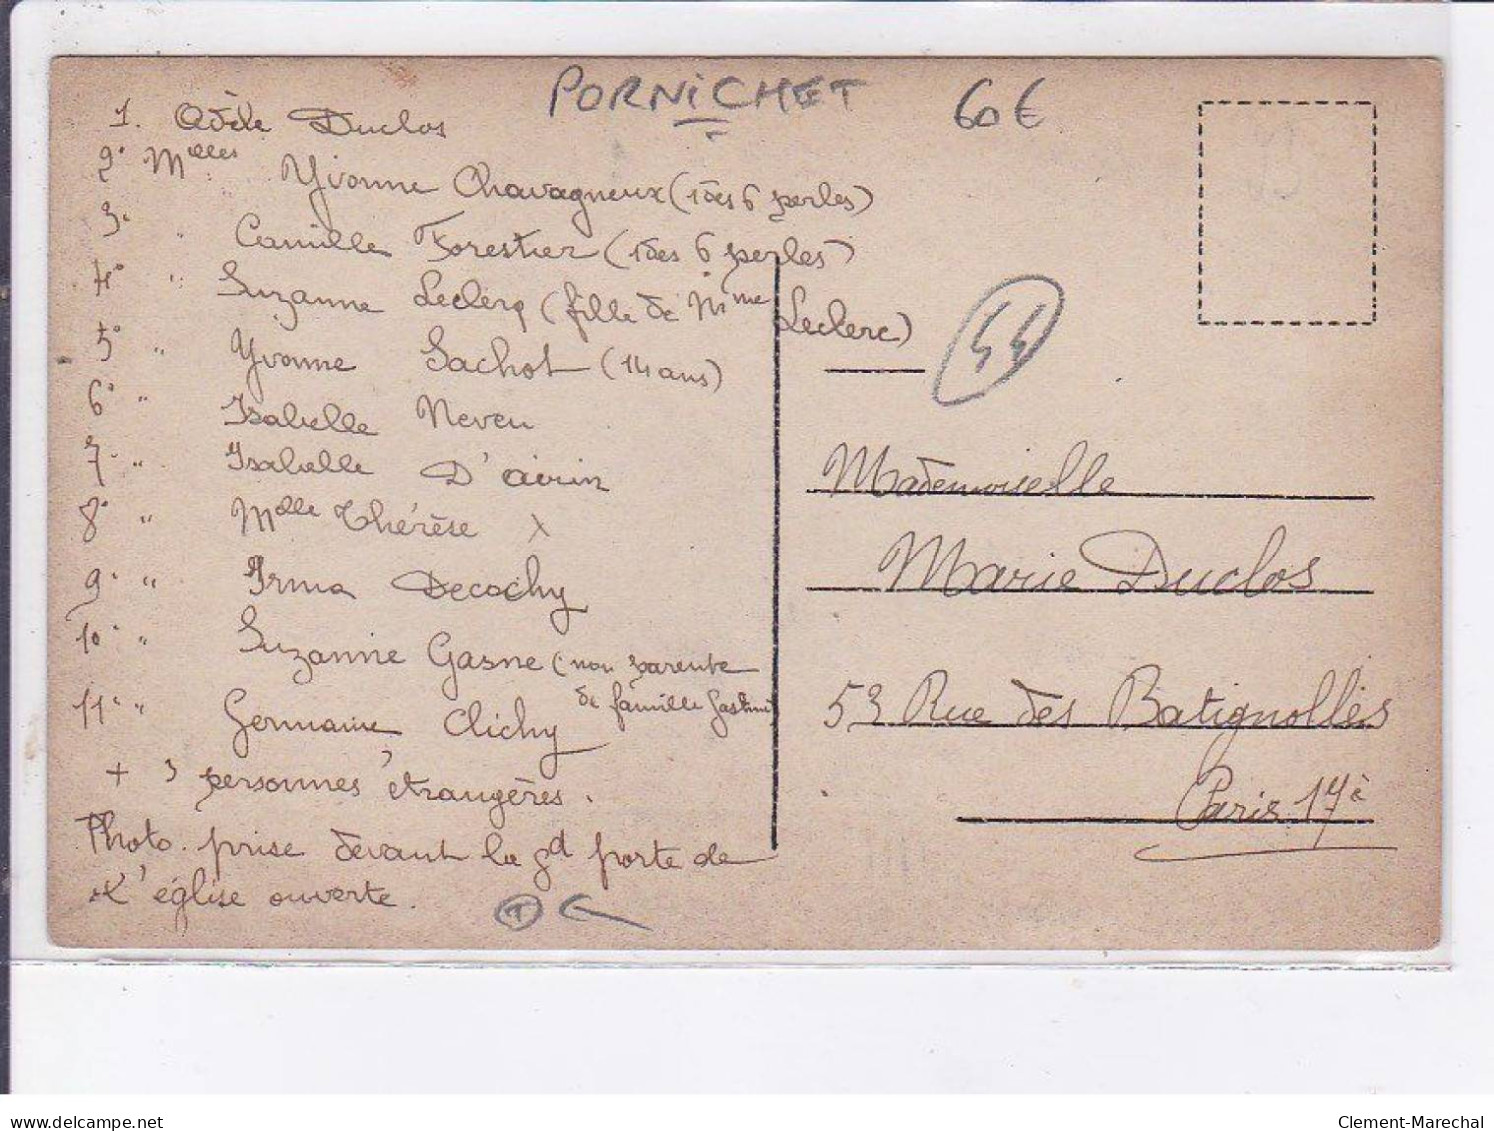 PORNICHET 60€
1. Adèle Duclos
2° Melles Yvonne Chavagneux (1 des 6 perles)
3° " Camille Forestier (1 des 6 perles)
4° " Suzanne Leclerq (fille de Mme Leclerc)
5° " Yvonne Sachot (14 ans)
6° " Isabelle Neveu
7° " Isabelle D'
8° " Mdlle Thérèse X
9° " Irma Decochy
10° " Suzanne Gasne (non parente
de famille
11° " Germaine Clichy
+ 3 personnes étrangères.
Photo prise devant la gd porte de
L'église ouverte.
44
Mademoiselle
Marie Duclos
53 Rue des Batignolles
Paris 17è
T
delcampe.net
Clement-Marechal